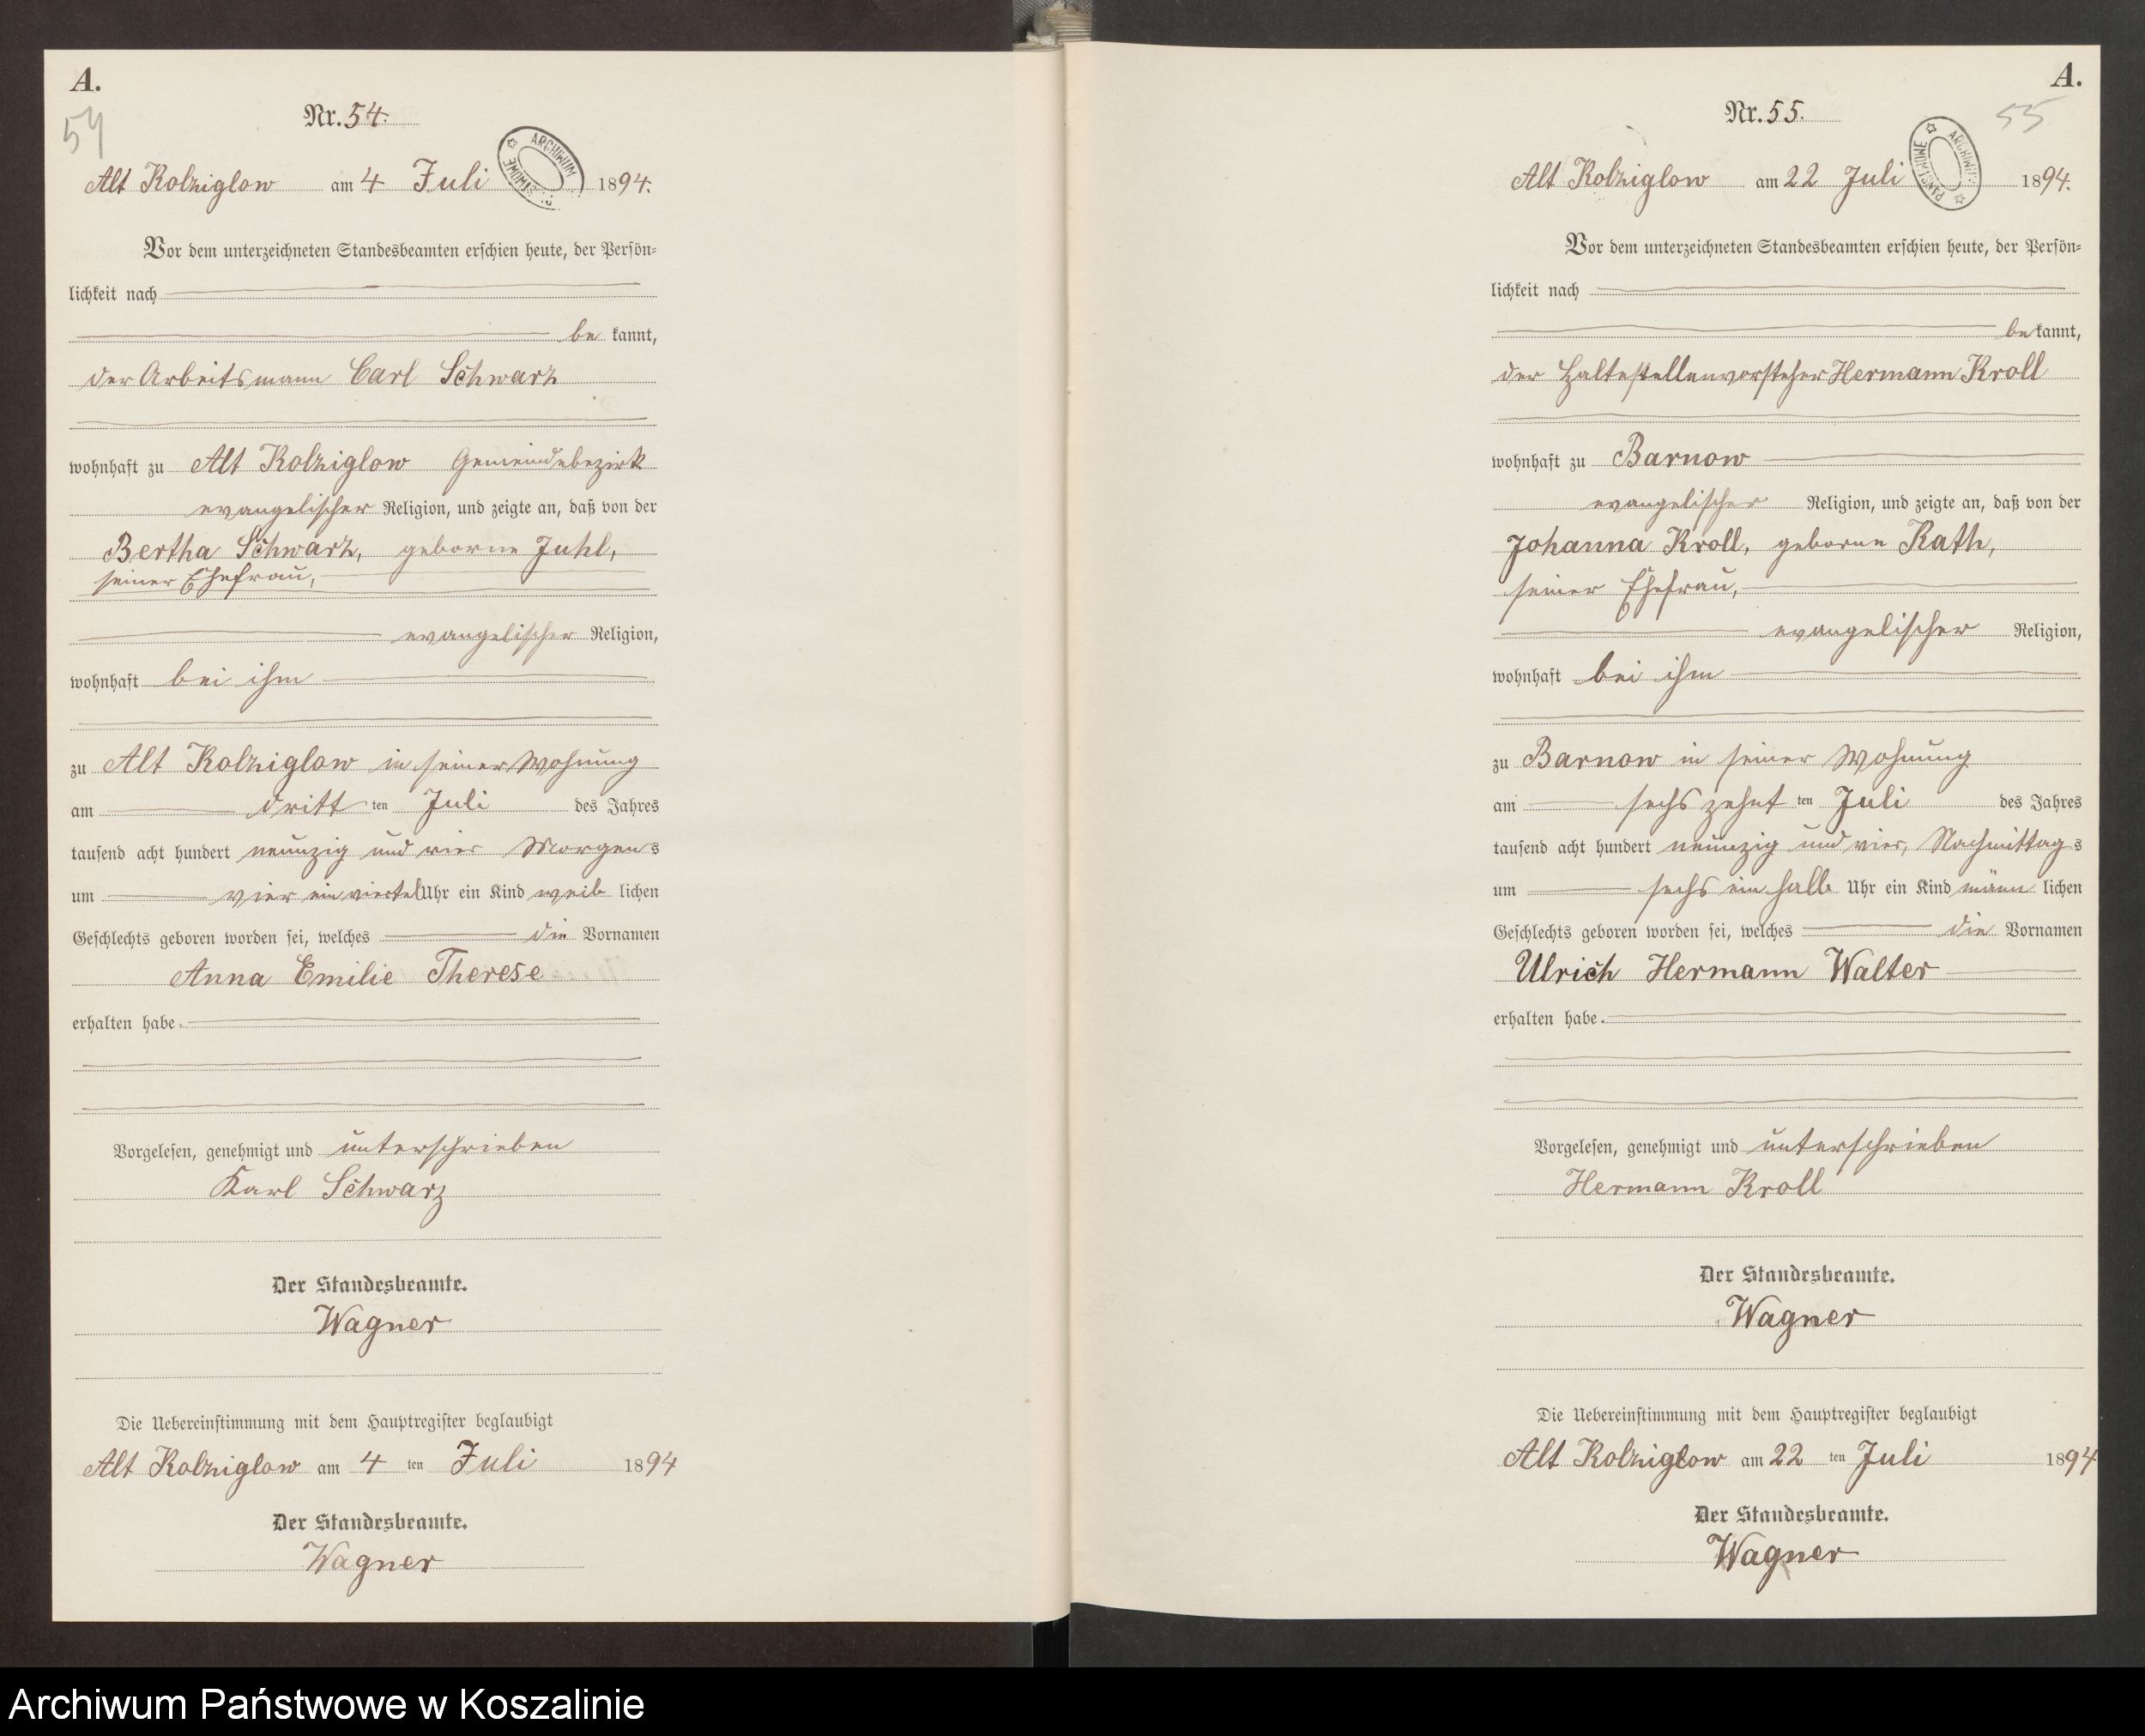 A.
54
Nr. 54.
Alt Kolziglow am 4 Juli 1894.
ARCHIWUM
Vor dem unterzeichneten Standesbeamten erschien heute, der Persön=
lichkeit nach
be kannt,
der Arbeitsmann Carl Schwarz
wohnhaft zu Alt Kolziglow Gemeindebezirk
evangelischer Religion, und zeigte an, daß von der
Bertha Schwarz, geborne Juhl,
seiner Ehefrau,
evangelischer Religion,
wohnhaft bei ihm
zu Alt Kolziglow in seiner Wohnung
am dritt ten Juli des Jahres
tausend acht hundert neunzig und vier Morgens
um vier ein viertel Uhr ein Kind weib lichen
Geschlechts geboren worden sei, welches die Vornamen
Anna Emilie Therese
erhalten habe.
Vorgelesen, genehmigt und unterschrieben
Karl Schwarz
Der Standesbeamte.
Wagner
Die Uebereinstimmung mit dem Hauptregister beglaubigt
Alt Kolziglow am 4 ten Juli 1894
Der Standesbeamte.
Wagner
A.
55
Nr. 55.
Alt Kolziglow am 22 Juli 1894.
ARCHIWUM PAŃSTWOWE
Vor dem unterzeichneten Standesbeamten erschien heute, der Persön=
lichkeit nach
be kannt,
der Haltestellenvorsteher Hermann Kroll
wohnhaft zu Barnow
evangelischer Religion, und zeigte an, daß von der
Johanna Kroll, geborne Rath,
seiner Ehefrau,
evangelischer Religion,
wohnhaft bei ihm
zu Barnow in seiner Wohnung
am sechszehnt ten Juli des Jahres
tausend acht hundert neunzig und vier, Nachmittags
um sechs ein halb Uhr ein Kind männ lichen
Geschlechts geboren worden sei, welches die Vornamen
Ulrich Hermann Walter
erhalten habe.
Vorgelesen, genehmigt und unterschrieben
Hermann Kroll
Der Standesbeamte.
Wagner
Die Uebereinstimmung mit dem Hauptregister beglaubigt
Alt Kolziglow am 22 ten Juli 1894
Der Standesbeamte.
Wagner
Archiwum Państwowe w Koszalinie